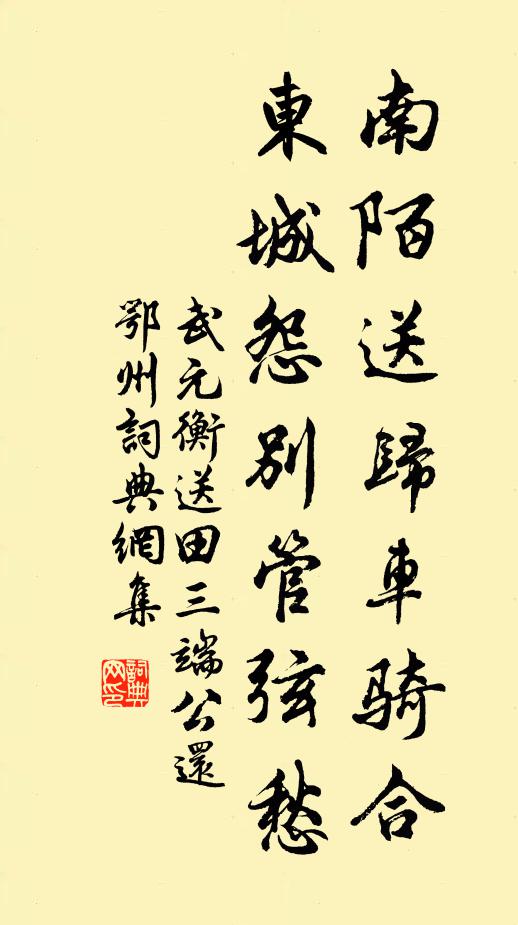 南陌送歸車騎合
東城怨別管弦愁
武元衡送田三端公還
鄂州詞典網集
詞典
网印